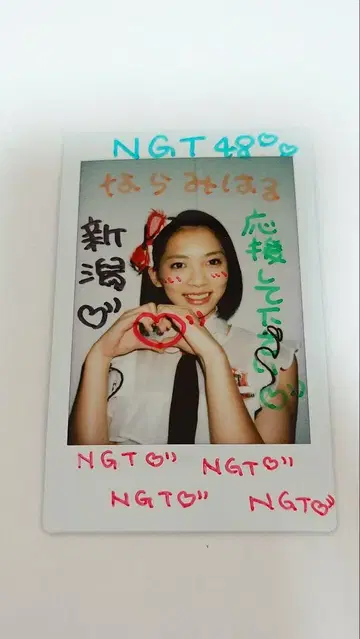 NGT48♡♡
ならみはる
新潟♡
応援して下さい♡
NGT♡
NGT♡
NGT♡
NGT♡